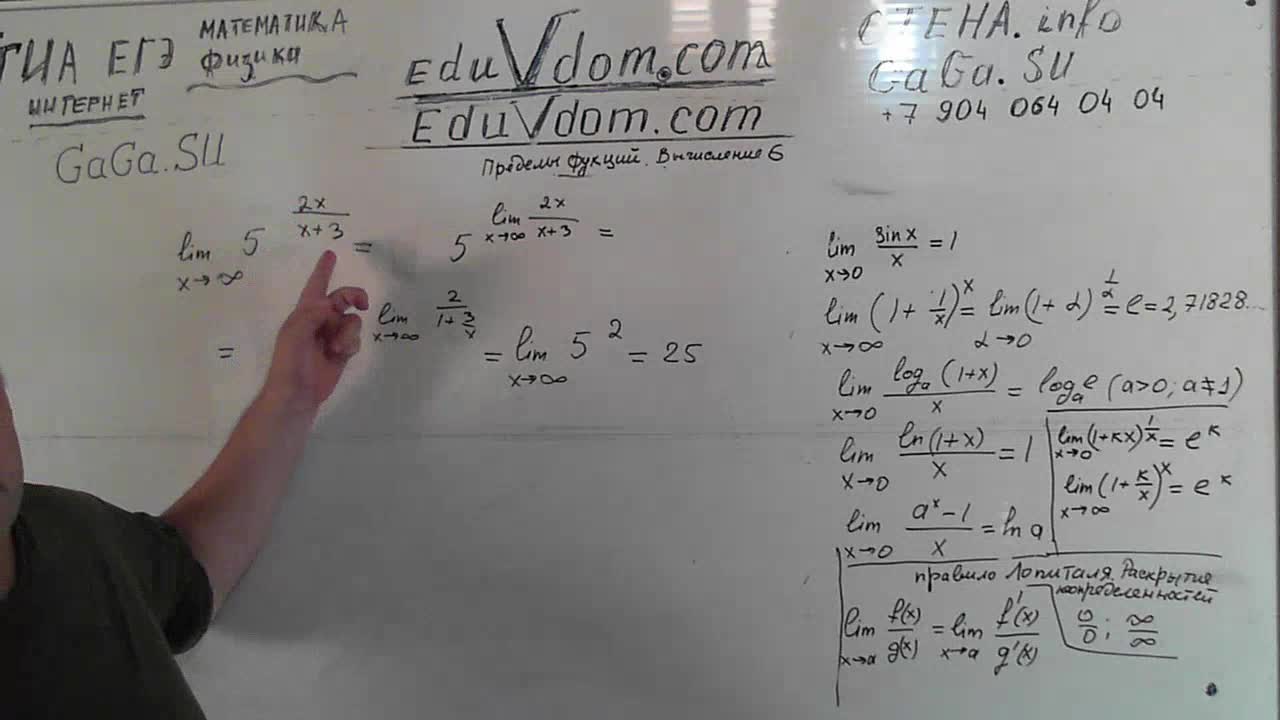 ГИА ЕГЭ МАТЕМАТИКА
физики
ИНТЕРНЕТ
GaGa.SU
EduVdom.com
EduVdom.com
Пределы фукций. Вычисление 6
СТЕНА.info
GaGa.SU
+7 904 064 04 04
lim x→∞ 5^(2x/(x+3)) = 5^(lim x→∞ 2x/(x+3)) =
= lim x→∞ 2/(1+3/x) = lim x→∞ 5^2 = 25
lim x→0 sin x/x = 1
lim x→∞ (1 + 1/x)^x = lim α→0 (1 + α)^(1/α) = e = 2,71828...
lim x→0 log_a (1+x)/x = log_a e (a>0; a≠1)
lim x→0 ln(1+x)/x = 1
lim x→0 (1+кx)^(1/x) = e^к
lim x→∞ (1+к/x)^x = e^к
lim x→0 (a^x-1)/x = ln a
правило Лопиталя. Раскрытие
неопределенностей
lim x→a f(x)/g(x) = lim x→a f'(x)/g'(x) 0/0; ∞/∞